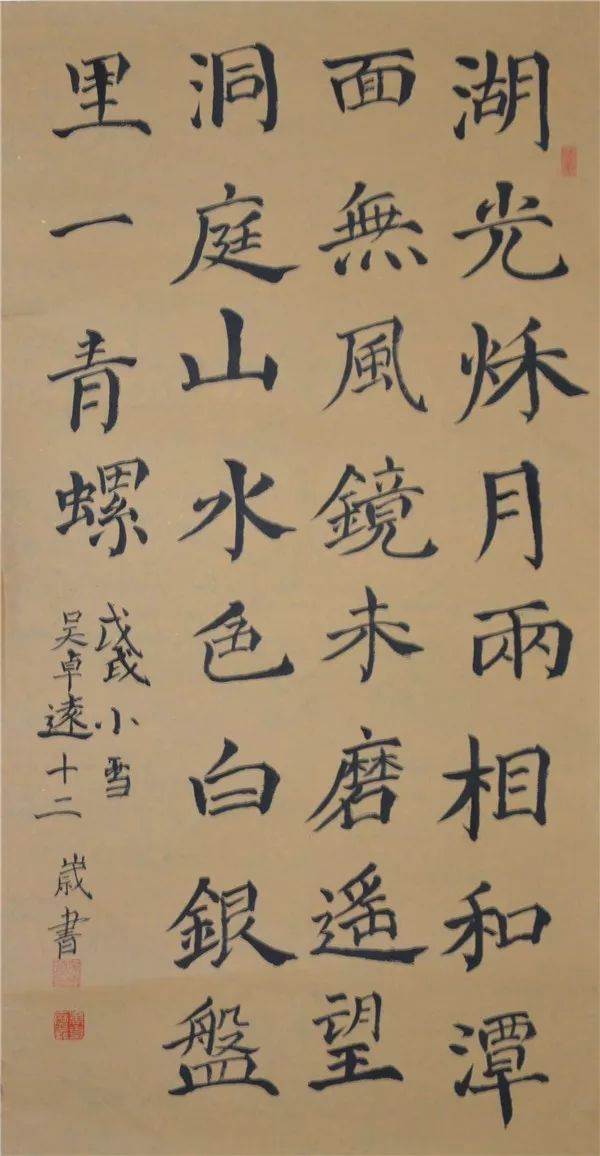 湖光秌月兩相和潭
面無風鏡未磨遙望
洞庭山水色白銀盤
里一青螺
戊戌小雪
吴卓遠十二歲書